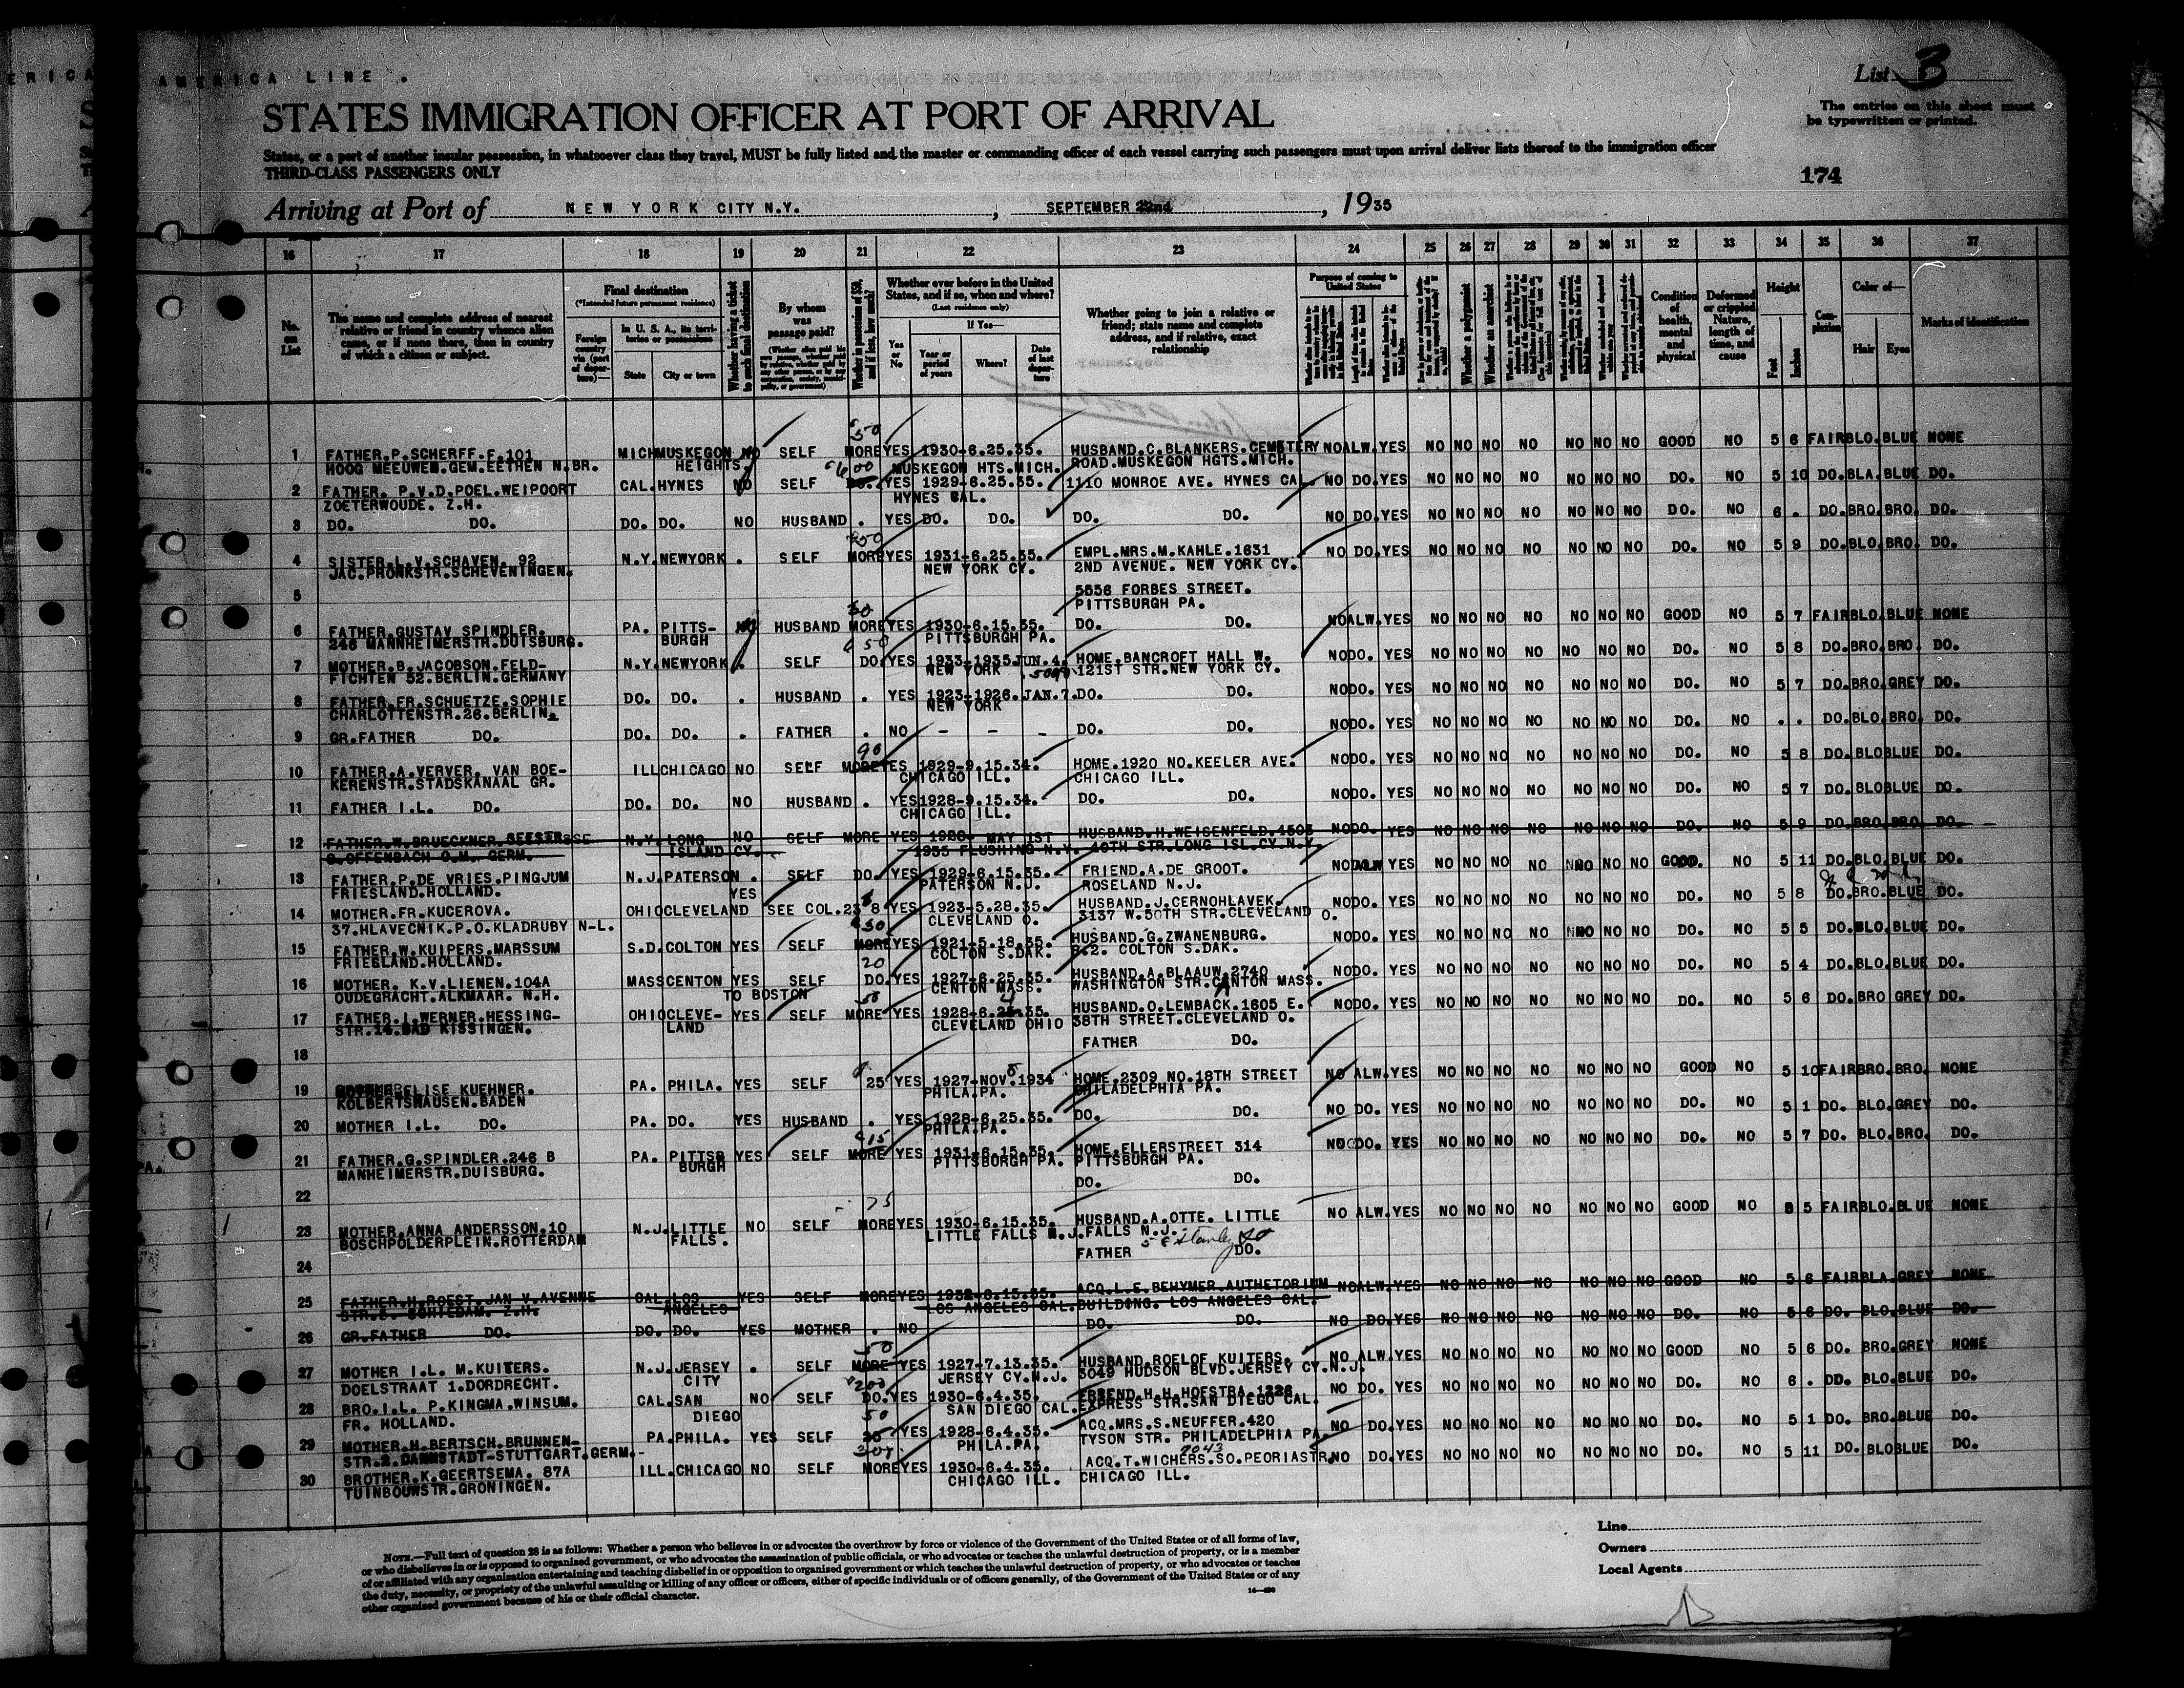 AMERICA LINE.
List 3
STATES IMMIGRATION OFFICER AT PORT OF ARRIVAL
The entries on this sheet must be typewritten or printed.
States, or a port of another insular possession, in whatsoever class they travel, MUST be fully listed and the master or commanding officer of each vessel carrying such passengers must upon arrival deliver lists thereof to the immigration officer
THIRD-CLASS PASSENGERS ONLY
174
Arriving at Port of NEW YORK CITY N.Y., SEPTEMBER 22nd, 1935
16 17 18 19 20 21 22 23 24 25 26 27 28 29 30 31 32 33 34 35 36 37
No. on List
The name and complete address of nearest relative or friend in country whence alien came, or if none there, then in country of which a citizen or subject.
Final destination
(*Intended future permanent residence)
Foreign country via (port of departure)—
In U. S. A., its territories or possessions
State
City or town
Whether having a ticket to such final destination
By whom was passage paid?
Whether in possession of $50, and if less, how much?
Whether ever before in the United States, and if so, when and where?
(Last residence only)
Yes or No
If Yes—
Year or period of years
Where?
Date of last departure
Whether going to join a relative or friend; state name and complete address, and if relative, exact relationship
Purpose of coming to United States
Whether a polygamist
Whether an anarchist
Condition of health, mental and physical
Deformed or crippled. Nature, length of time, and cause
Height
Feet
Inches
Complexion
Color of—
Hair
Eyes
Marks of identification
1 FATHER.P.SCHERFF.F.101 MICH MUSKEGON NO SELF MORE YES 1930-6.25.35. HUSBAND.C.BLANKERS.CEMETERY NO ALW. YES NO NO NO NO NO NO NO GOOD NO 5 6 FAIR BLO. BLUE NONE
HOOG MEEUWEN.GEM.EETHEN N.BR. HEIGHTS. MUSKEGON HTS.MICH. ROAD.MUSKEGON HGTS.MICH.
2 FATHER. P.V.D.POEL.WEIPOORT CAL. HYNES NO SELF DO. YES 1929-6.25.35. 1110 MONROE AVE. HYNES CAL. NO DO. YES NO NO NO NO NO NO NO DO. NO 5 10 DO. BLA. BLUE DO.
ZOETERWOUDE. Z.H. HYNES CAL.
3 DO. DO. DO. DO. NO HUSBAND . YES DO. DO. DO. DO. NO DO. YES NO NO NO NO NO NO NO DO. NO 6 . DO. BRO. BRO. DO.
4 SISTER.L.V.SCHAVEN. 92 N.Y. NEWYORK . SELF MORE YES 1931-6.25.35. EMPL.MRS.M.KAHLE.1631 NO DO. YES NO NO NO NO NO NO NO DO. NO 5 9 DO. BLO. BRO. DO.
JAC.PRONKSTR.SCHEVENINGEN. NEW YORK CY. 2ND AVENUE. NEW YORK CY.
5 5556 FORBES STREET.
PITTSBURGH PA.
6 FATHER.GUSTAV SPINDLER. PA. PITTS- NO HUSBAND MORE YES 1930-6.15.35. DO. DO. NO ALW. YES NO NO NO NO NO NO NO GOOD NO 5 7 FAIR BLO. BLUE NONE
246 MANNHEIMERSTR.DUISBURG. BURGH PITTSBURGH PA.
7 MOTHER.B.JACOBSON.FELD- N.Y. NEWYORK . SELF DO. YES 1933-1935.JUN.4. HOME.BANCROFT HALL W. NO DO. YES NO NO NO NO NO NO NO DO. NO 5 8 DO. BRO. BRO. DO.
FICHTEN 52.BERLIN.GERMANY NEW YORK 121ST STR.NEW YORK CY.
8 FATHER.FR.SCHUETZE.SOPHIE DO. DO. . HUSBAND . YES 1923-1926.JAN.7. DO. DO. NO DO. YES NO NO NO NO NO NO NO DO. NO 5 7 DO. BRO. GREY DO.
CHARLOTTENSTR.26.BERLIN. NEW YORK
9 GR.FATHER DO. DO. DO. . FATHER . NO - - - DO. DO. NO DO. YES NO NO NO NO NO NO NO DO. NO . . DO. BLO. BRO. DO.
10 FATHER.A.VERVER. VAN BOE- ILL CHICAGO NO SELF MORE YES 1929-9.15.34. HOME.1920 NO.KEELER AVE. NO DO. YES NO NO NO NO NO NO NO DO. NO 5 8 DO. BLO BLUE DO.
KERENSTR.STADSKANAAL GR. CHICAGO ILL. CHICAGO ILL.
11 FATHER I.L. DO. DO. DO. NO HUSBAND . YES 1928-9.15.34. DO. DO. NO DO. YES NO NO NO NO NO NO NO DO. NO 5 7 DO. BLO BLUE DO.
CHICAGO ILL.
12 FATHER.W.BRUECKNER N.Y. LONG NO SELF MORE YES MAY 1ST HUSBAND.H.WEISENFELD.4503 NO DO. YES NO NO NO NO NO NO NO DO. NO 5 9 DO. BRO. BRO. DO.
OFFENBACH O.M. GERM. ISLAND CY. 1935 FLUSHING N.Y. 40TH STR.LONG ISL.CY.N.Y.
13 FATHER.P.DE VRIES.PINGJUM N.J. PATERSON . SELF DO. YES 1929-6.15.35. FRIEND.A.DE GROOT. NO ALW YES NO NO NO NO NO NO NO GOOD. NO 5 11 DO. BLO. BLUE DO.
FRIESLAND.HOLLAND. PATERSON N.J. ROSELAND N.J.
14 MOTHER.FR.KUCEROVA. OHIO CLEVELAND YES SEE COL.23 8 YES 1923-5.28.35. HUSBAND.J.CERNOHLAVEK. NO DO. YES NO NO NO NO NO NO NO DO. NO 5 8 DO. BRO. BLUE DO.
37.HLAVECNIK.P.O.KLADRUBY N-L. CLEVELAND O. 3137 W.50TH STR.CLEVELAND O.
15 FATHER.W.KUIPERS.MARSSUM S.D. COLTON YES SELF MORE YES 1921-5.18.35. HUSBAND.G.ZWANENBURG. NO DO. YES NO NO NO NO NO NO NO DO. NO 5 5 DO. BLO. BLUE DO.
FRIESLAND.HOLLAND. COLTON S.DAK. R.2. COLTON S.DAK.
16 MOTHER. K.V.LIENEN.104A MASS CENTON YES SELF DO. YES 1927-6.25.35. HUSBAND.A.BLAAUW.2740 NO DO. YES NO NO NO NO NO NO NO DO. NO 5 4 DO. BLO. BLUE DO.
OUDEGRACHT.ALKMAAR. N.H. TO BOSTON CENTON MASS. WASHINGTON STR.CANTON MASS.
17 FATHER.I.WERNER.HESSING- OHIO CLEVE- YES SELF MORE YES 1928-6. .35. HUSBAND.O.LEMBACK.1605 E. NO DO. YES NO NO NO NO NO NO NO DO. NO 5 6 DO. BRO GREY DO.
STR.14.BAD KISSINGEN. LAND CLEVELAND OHIO 38TH STREET.CLEVELAND O.
18 FATHER DO.
19 ELISE KUEHNER. PA. PHILA. YES SELF 25 YES 1927-NOV.1934 HOME.2309 NO.18TH STREET NO ALW. YES NO NO NO NO NO NO NO GOOD NO 5 10 FAIR BRO. BRO. NONE
KOLBERTSHAUSEN.BADEN PHILA.PA. PHILADELPHIA PA.
20 MOTHER I.L. DO. PA. DO. YES HUSBAND . YES 1928-6.25.35. DO. DO. NO DO. YES NO NO NO NO NO NO NO DO. NO 5 1 DO. BLO. GREY DO.
PHILA.PA.
21 FATHER.G.SPINDLER.246 B PA. PITTSB YES SELF MORE YES 1931-6.15.35. HOME.ELLERSTREET 314 NO DO. YES NO NO NO NO NO NO NO DO. NO 5 7 DO. BLO. BRO. DO.
MANHEIMERSTR.DUISBURG. BURGH PITTSBURGH PA. PITTSBURGH PA.
22 DO. DO.
23 MOTHER.ANNA ANDERSSON.10 N.J. LITTLE NO SELF MORE YES 1930-6.15.35. HUSBAND.A.OTTE. LITTLE NO ALW. YES NO NO NO NO NO NO NO GOOD NO 5 5 FAIR BLO. BLUE NONE
BOSCHPOLDERPLEIN.ROTTERDAM FALLS. LITTLE FALLS N.J. FALLS N.J.
24 FATHER DO.
25 FATHER.H.ROEST.JAN V.AVENNE CAL. LOS YES SELF MORE YES 1932-6.15.35. ACQ.L.E.BEHYMER.AUTHETORIUM NO ALW. YES NO NO NO NO NO NO NO GOOD NO 5 6 FAIR BLA. GREY NONE
SCHIEDAM. Z.H. ANGELES LOS ANGELES CAL. BUILDING. LOS ANGELES CAL.
26 GR.FATHER DO. DO. DO. YES MOTHER . NO DO. DO. NO DO. YES NO NO NO NO NO NO NO DO. NO 5 6 DO. BLO. BLUE DO.
27 MOTHER I.L. M.KUITERS. N.J. JERSEY . SELF MORE YES 1927-7.13.35. HUSBAND.ROELOF KUITERS. NO ALW. YES NO NO NO NO NO NO NO GOOD NO 5 6 DO. BRO. GREY NONE
DOELSTRAAT 1.DORDRECHT. CITY JERSEY CY.N.J. 3049 HUDSON BLVD.JERSEY CY.N.J.
28 BRO.I.L. P.KINGMA.WINSUM. CAL. SAN NO SELF DO. YES 1930-6.4.35. H.H.HOFSTRA.1226 NO DO. YES NO NO NO NO NO NO NO DO. NO 6 . DO. BLO. BLUE DO.
FR. HOLLAND. DIEGO SAN DIEGO CAL. EXPRESS STR.SAN DIEGO CAL.
29 MOTHER.H.BERTSCH.BRUNNEN- PA. PHILA. YES SELF YES 1928-6.4.35. ACQ.MRS.S.NEUFFER.420 NO DO. YES NO NO NO NO NO NO NO DO. NO 5 1 DO. BRO. BLUE DO.
STR.2. CANNSTADT-STUTTGART.GERM. PHILA.PA. TYSON STR. PHILADELPHIA PA.
30 BROTHER.K.GEERTSEMA. 87A ILL. CHICAGO NO SELF MORE YES 1930-6.4.35. ACQ.T.WICHERS.SO.PEORIASTR. NO DO. YES NO NO NO NO NO NO NO DO. NO 5 11 DO. BLO BLUE DO.
TUINBOUWSTR.GRONINGEN. CHICAGO ILL. CHICAGO ILL.
Line
Owners
Local Agents
NOTE.—Full text of question 28 is as follows: Whether a person who believes in or advocates the overthrow by force or violence of the Government of the United States or of all forms of law,
or who disbelieves in or is opposed to organized government, or who advocates the assassination of public officials, or who advocates or teaches the unlawful destruction of property, or is a member
of or affiliated with any organization entertaining and teaching disbelief in or opposition to organized government or which teaches the unlawful destruction of property, or who advocates or teaches
the duty, necessity, or propriety of the unlawful assaulting or killing of any officer or officers, either of specific individuals or of officers generally, of the Government of the United States or of any
other organized government because of his or their official character.